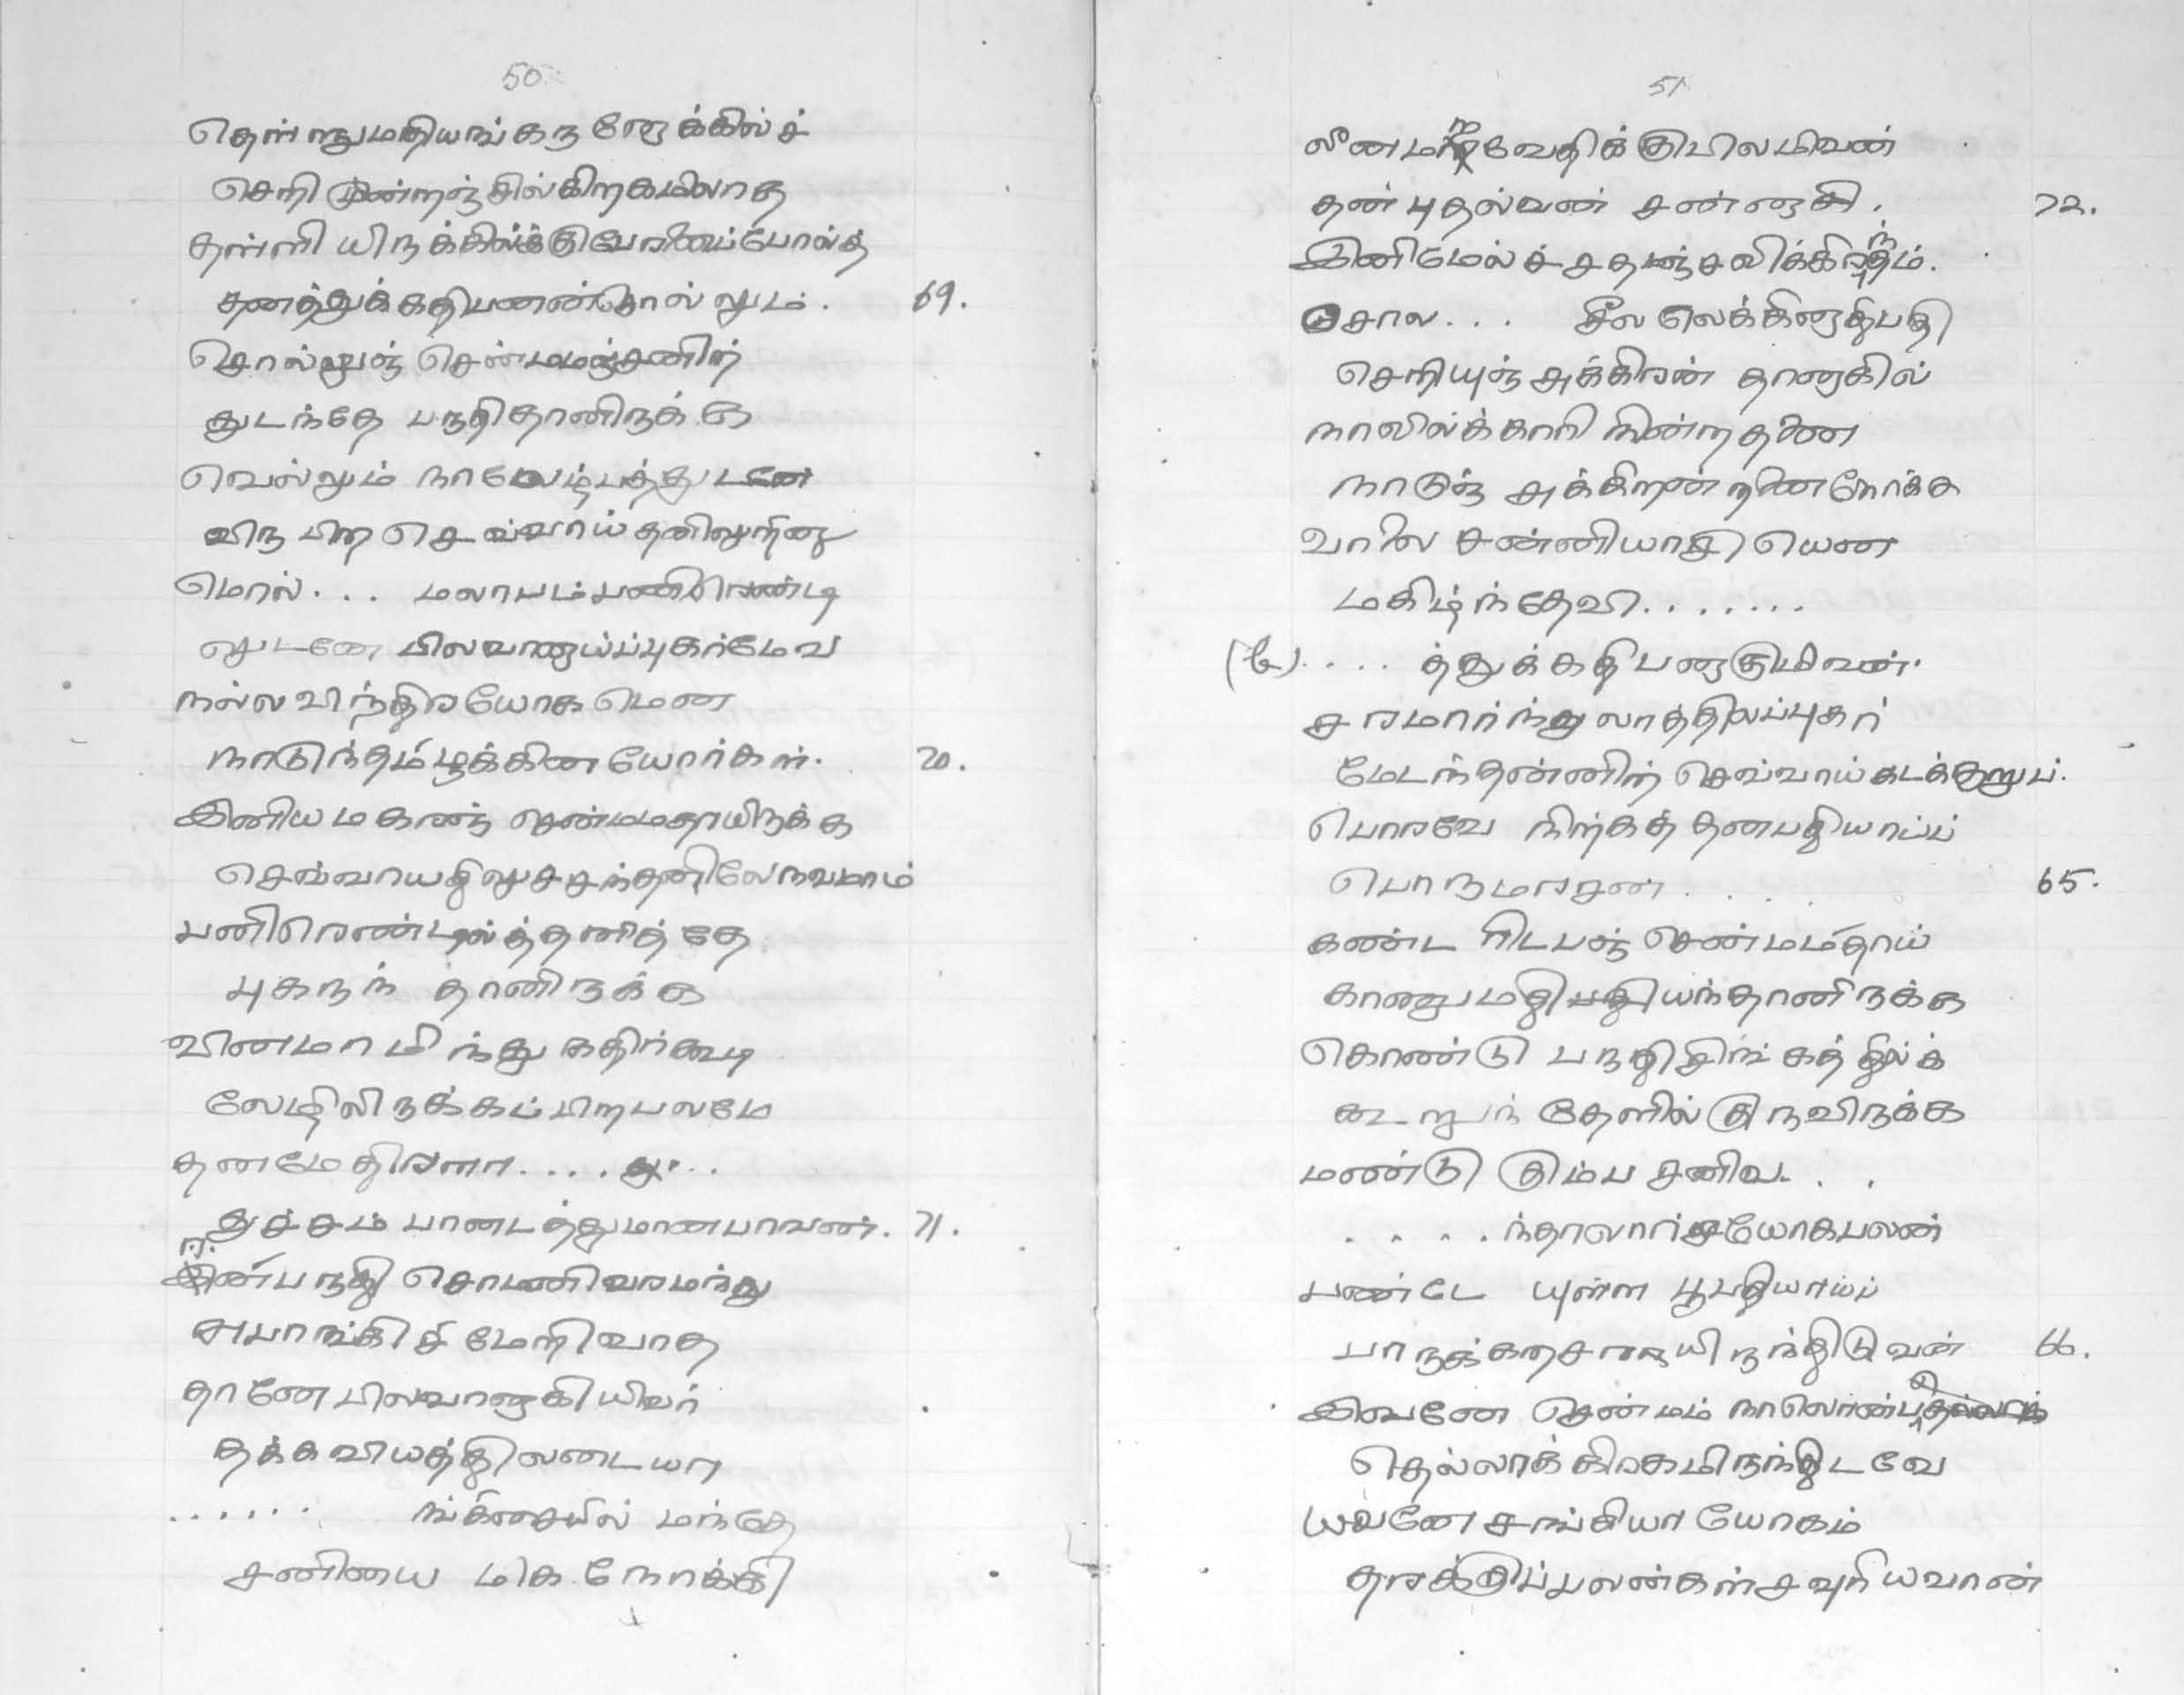 50
தெள்ளுமதியங்கரு லேக்கில்ச்
செறி முன்றஞ்சில்கிறகமிலாத
தள்ளி யிருக்கில்க்குபேரனைப்போல்த்
தனத்துக்கதிபனண்சொல் லும். 69.
சொல்லுஞ் சென்மமஞ்சனிற்
துடந்தே பருதிதானிருக்கு
வெல்லும் நாலேழ்பத்துடனே
விரு பிற செவ்வாய்தனிலுரினு
மொல். . . மலாபம்பனிரெண்டி
லுடனே பிலவானுய்ப்புகர்மேவ
நல்லவிந்திரயோக மென
நாடுந்தமிழ்க்கின யோர்கள். 70.
இனியமகரஞ் சென்மமதாயிருக்க
செவ்வாயதிலுச்சந்தனிலேநவமாம்
பனிரெண்டில்த்தனித்தே
புகருந் தானிருக்க
வினமாமிந்து கதிர்கூடி
லேழிலிருக்கப்பிறபலமே
தனமேதிரளா. . . . து. .
துச்சம் பாடைத்துமானபாவன். 71.
இன்பருதி சொமனிவரமந்து
சுபாங்கிச மேறிவாத
தானே பிலவானுகியிவர்
தக்கவியத்திலடையா
. . . . . . ங்கிசையில் மந்தே
சனியை மிக நோக்கி
51
லீனமறவேதிக்குபிலமிவன்
தன் புதல்வன் சண்ணுகி. 72.
இனிமேல்ச் சதஞ்சவிக்கிரந்தம்.
சேசால. . . சீல லெக்கினுதிபதி
செறியுஞ்சுக்கிரன் தானுகில்
நாலில்க்காரி நின்றதனை
நாடுஞ் சுக்கிறன்றனைநோக்க
வாலை சண்ணியாசி யென
மகிழ்ந்தேவி. . . . . . .
(6). . . . த்துக்கதிபனுகுமிவன்.
சரமார்ந்துலாத்திலப்புகர்
மேடந்தன்னிற் செவ்வாய் கடக்குறும்.
பொரவே நிற்கத் தனபதியாய்ப்
பொருமரசன். . . . 65.
கண்ட ரிடபஞ் சென்மம்தாய்
காணுமதிபதியந்தானிருக்க
கொண்டு பருதிசிங்கத்தில்க்
கூறுந் தேளில் குருவிருக்க
மண்டு கும்ப சனிவ. . .
. . . . ந்தாலார்ச்சுயோகபலன்
பண்டே யுள்ள பூபதியாய்ப்
பாருக்கரசராயிருந்திடுவன் 66.
இவனே சென்மம் நாலொண்பதில்
தெல்லாக்கிரகமிருந்திடவே
யவனே சங்கியா யோகம்
தரக்குப்பலன்கள்சவுரியவான்